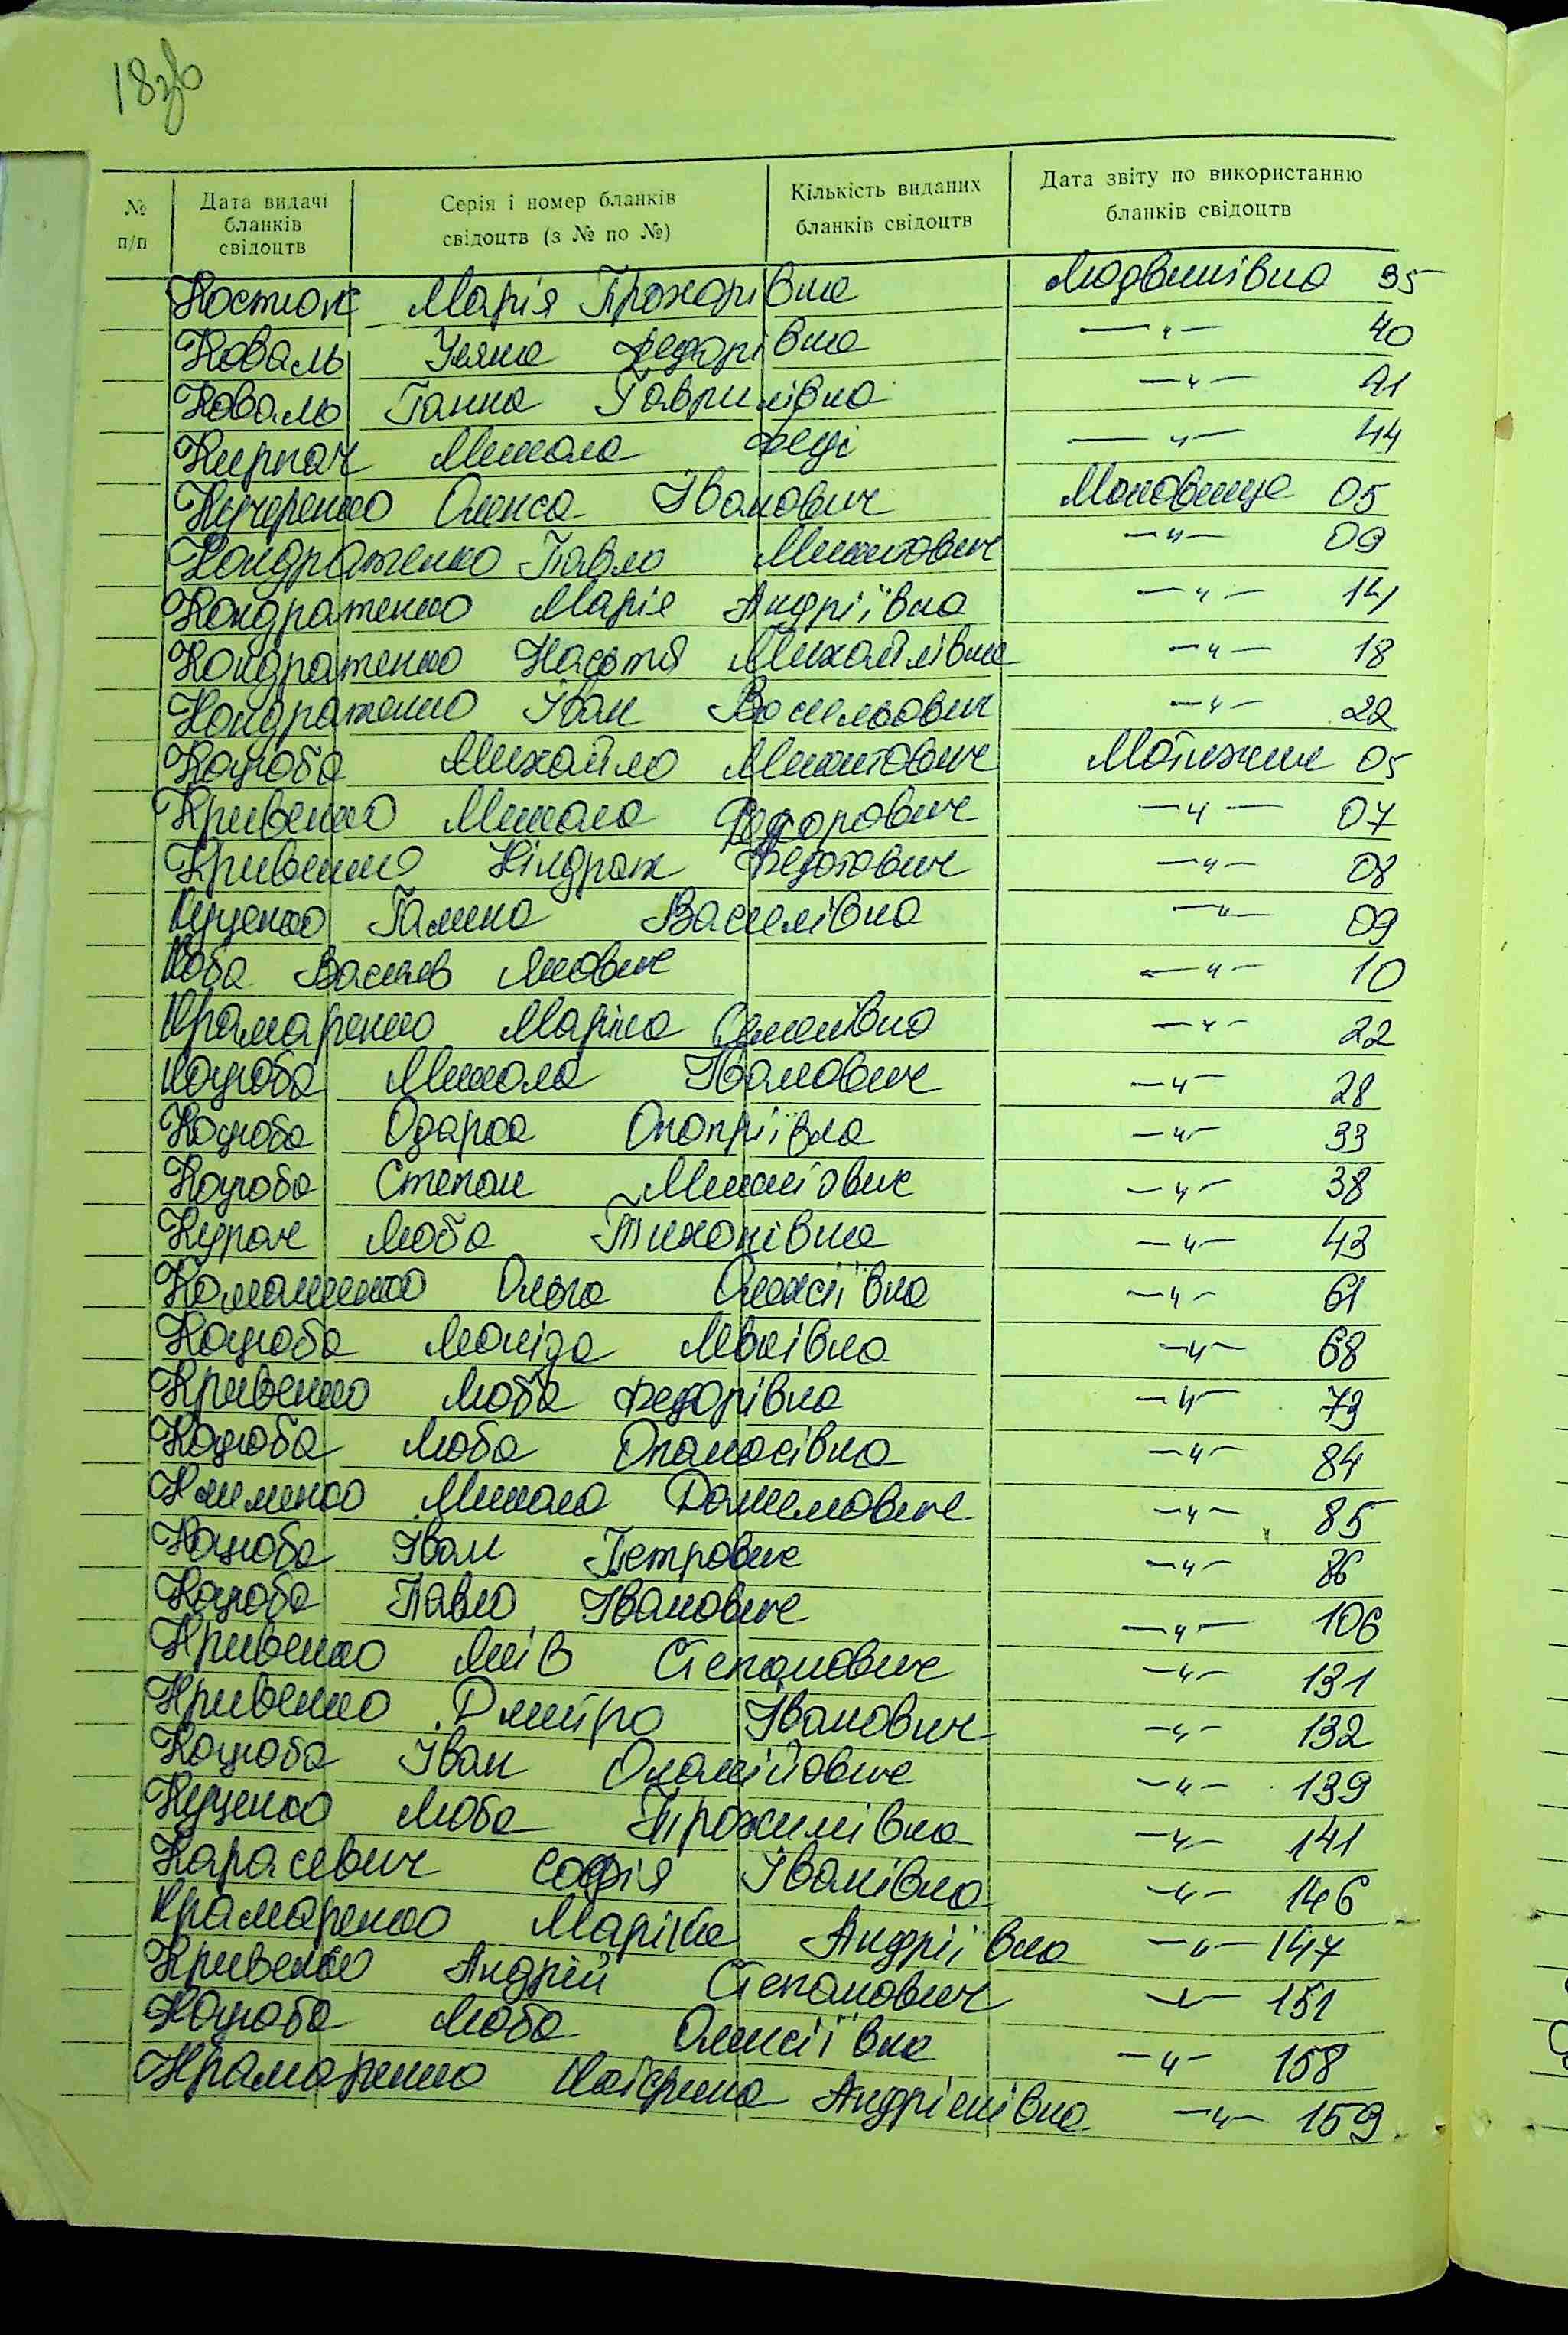 18зв
№ п/п Дата видачі бланків свідоцтв Серія і номер бланків свідоцтв (з № по №) Кількість виданих бланків свідоцтв Дата звіту по використанню бланків свідоцтв
Костюк Марія Прохорівна Людвинівка 35
Коваль Уляна Федорівна —"— 40
Коваль Ганна Гаврилівна —"— 41
Кирпач Микола —"— 44
Кучеренко Олекса Іванович Маковище 05
Кондратенко Павло Микитович —"— 09
Кондратенко Марія Андріївна —"— 14
Кондратенко Настя Михайлівна —"— 18
Кондратенко Іван Васильович —"— 22
Коцюба Михайло Микитович Мотижин 05
Кривенко Микола Федорович —"— 07
Кривенко Кіндрат Федотович —"— 08
Куценко Галина Василівна —"— 09
Коба Василь Якович —"— 10
Крамаренко Марина Семенівна —"— 22
Коцюба Микола Іванович —"— 28
Коцюба Одарка Онопріївна —"— 33
Коцюба Степан —"— 38
Курач Люба Тихонівна —"— 43
Ольга Олексіївна —"— 61
Коцюба Леоніда —"— 68
Кривенко Люба Федорівна —"— 73
Коцюба Люба Опанасівна —"— 84
Клименко Микола Данилович —"— 85
Коцюба Іван Петрович —"— 86
Коцюба Павло Іванович —"— 106
Кривенко Степанович —"— 131
Кривенко Дмитро Іванович —"— 132
Коцюба Іван —"— 139
Куценко Люба —"— 141
Карасевич Софія Іванівна —"— 146
Крамаренко Марійка Андріївна —"— 147
Кривенко Андрій Степанович —"— 151
Коцюба Люба Олексіївна —"— 158
Крамаренко Катерина —"— 159